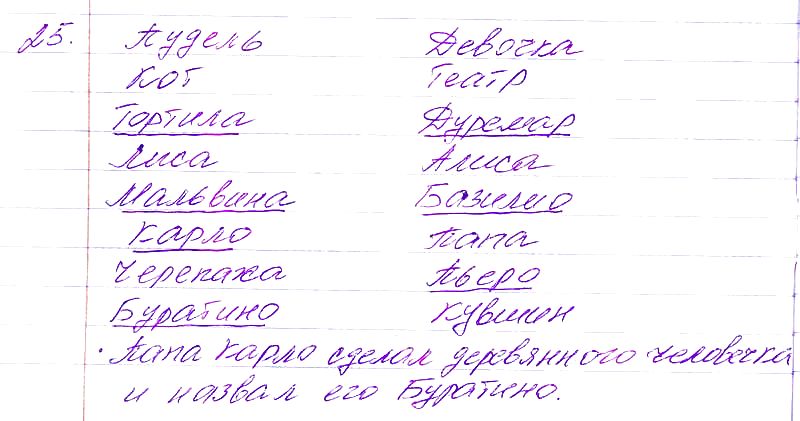 25. Пудель Девочка
Кот Театр
Тортила Дуремар
Лиса Алиса
Мальвина Базилио
Карло Папа
Черепаха Пьеро
Буратино Кувшин
· Папа Карло сделал деревянного человечка
и назвал его Буратино.